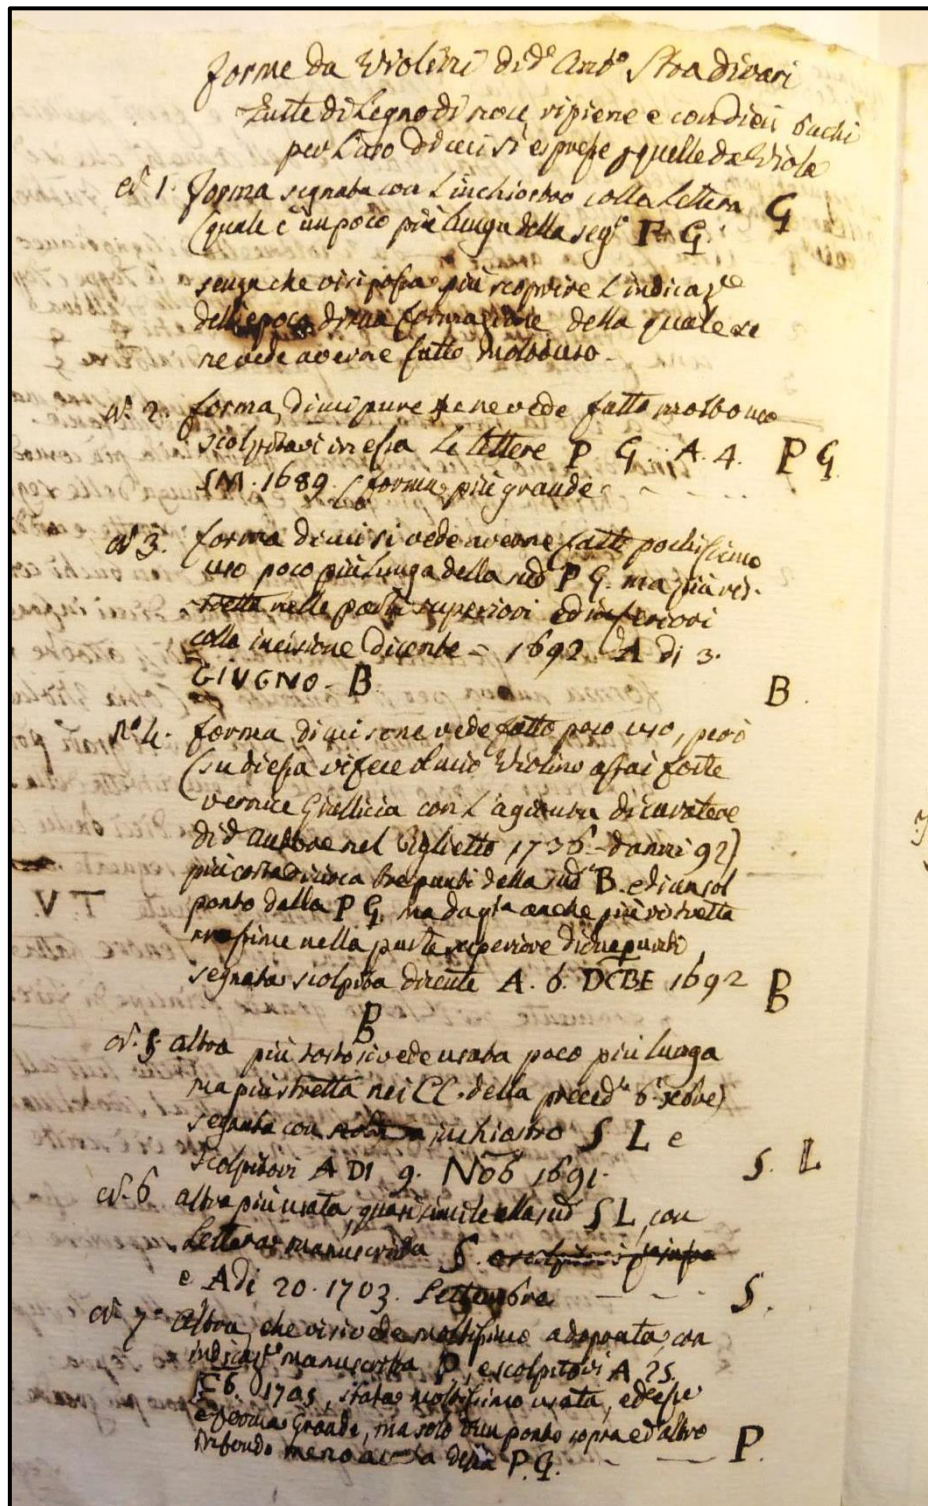 forme da Violini di d.º Ant.º Stradivari
Tutte di Legno di noce, ripiene e con dieci buchi
per l'uso di cui si espresse quelle da Viola
N. 1. forma segnata con L'inchiostro colla Lettera G
(quale è un poco più lunga della seg.e P. G.
senza che vi si possa più scoprire L'indicaz.ne
dell'epoca di sua formazione della quale se
ne vede averne fatto molto uso.
N. 2. forma, di cui pure se ne vede fatto molto uso
scolpitovi in essa Le lettere P G. A. 4. P G.
SM. 1689. (forma più grande
N. 3. forma di cui si vede averne fatti pochissimo
uso poco più lunga della sud. P G. ma più ris-
tretta nelle parti superiori ed inferiori
colla incisione dicente = 1692 A DI 3.
GIUGNO - B B.
N.º 4. forma, di cui se ne vede fatto poco uso, però
(su di essa vi fece Violino assai forte
vernice Giallicia con L'agiunta di carattere
di d. autore nel biglietto 1736 - d'anni 92)
più corta di circa tre punti della sud.a B. e di un sol
ponto dalla P G, ma da q.ta anche più ristretta
massime nella parte superiore di due punti
segnata scolpita dicente A. 6. DCBE 1692 B
B
N. 5. altra più tosto si vede usata poco più lunga
ma più stretta nei CC. della preced.te 6 Xbre)
segnata con inchiostro S L e
scolpitovi A DI 9. NOb 1691. S. L
N. 6 altra più usata, quasi simile alla sud. S L, con
Lettera manuscritta S.
e A di 20. 1703. Settembre S.
N. 7. Altra, che vi si vede moltissimo adoprata, con
manuscritta P, e scolpitovi A 25.
FEB. 1705, stata moltissimo usata, ed esse
è forma Grande, ma solo d'un ponto sopra ed altro
meno della P. G. P.